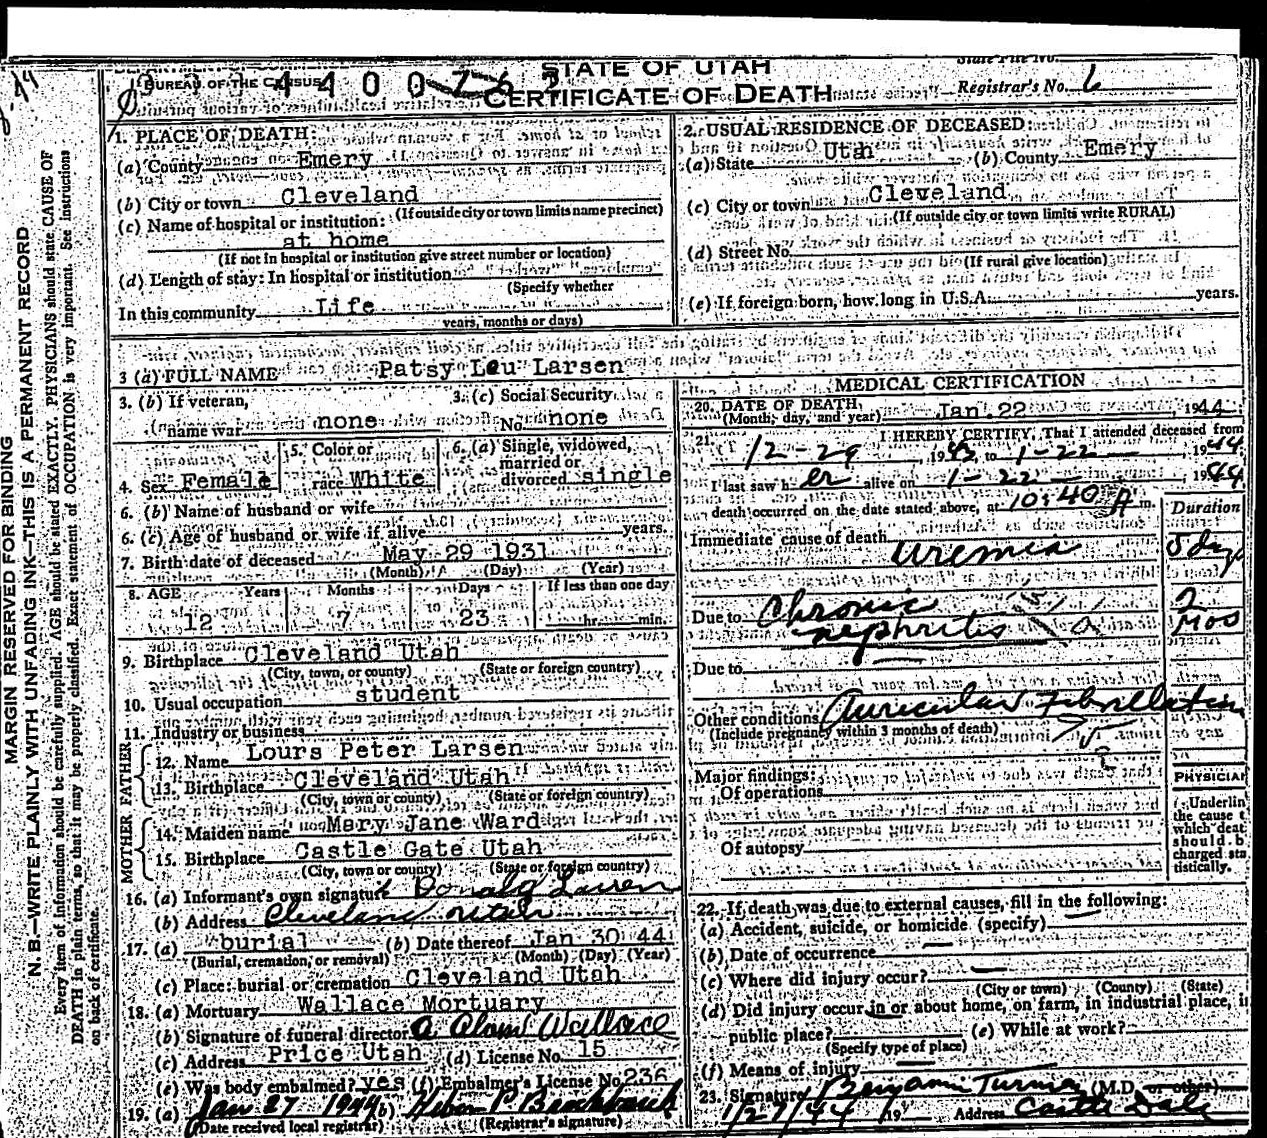 BUREAU OF THE CENSUS
STATE OF UTAH
CERTIFICATE OF DEATH
Registrar's No. 6
MARGIN RESERVED FOR BINDING
N. B.—WRITE PLAINLY WITH UNFADING INK—THIS IS A PERMANENT RECORD
Every item of information should be carefully supplied. AGE should be stated EXACTLY. PHYSICIANS should state CAUSE OF
DEATH in plain terms, so that it may be properly classified. Exact statement of OCCUPATION is very important. See instructions
on back of certificate.
1. PLACE OF DEATH:
(a) County Emery
(b) City or town Cleveland
(If outside city or town limits name precinct)
(c) Name of hospital or institution:
at home
(If not in hospital or institution give street number or location)
(d) Length of stay: In hospital or institution
(Specify whether
In this community Life
years, months or days)
2. USUAL RESIDENCE OF DECEASED:
(a) State Utah (b) County Emery
(c) City or town Cleveland
(If outside city or town limits write RURAL)
(d) Street No.
(If rural give location)
(e) If foreign born, how long in U.S.A. years.
3 (a) FULL NAME Patsy Lou Larsen
3. (b) If veteran,
name war none
3. (c) Social Security
No. none
4. Sex Female
5. Color or
race White
6. (a) Single, widowed,
married or
divorced single
6. (b) Name of husband or wife
6. (c) Age of husband or wife if alive years.
7. Birth date of deceased May 29 1931
(Month) (Day) (Year)
8. AGE Years Months Days If less than one day
12 7 23 hr. min.
9. Birthplace Cleveland Utah
(City, town, or county) (State or foreign country)
10. Usual occupation student
11. Industry or business
FATHER
12. Name Lours Peter Larsen
13. Birthplace Cleveland Utah
(City, town or county) (State or foreign country)
MOTHER
14. Maiden name Mary Jane Ward
15. Birthplace Castle Gate Utah
(City, town or county) (State or foreign country)
16. (a) Informant's own signature Donald Larsen
(b) Address Cleveland, Utah
17. (a) burial (b) Date thereof Jan 30 44
(Burial, cremation, or removal) (Month) (Day) (Year)
(c) Place: burial or cremation Cleveland Utah
18. (a) Mortuary Wallace Mortuary
(b) Signature of funeral director A Alam Wallace
(c) Address Price Utah (d) License No. 15
(e) Was body embalmed? yes (f) Embalmer's License No. 236
19. (a) Jan 27 1944 (b)
(Date received local registrar) (Registrar's signature)
MEDICAL CERTIFICATION
20. DATE OF DEATH
(Month, day, and year) Jan. 22, 1944
21. I HEREBY CERTIFY, That I attended deceased from
12-29, 1943, to 1-22, 1944
I last saw her alive on 1-22, 1944
death occurred on the date stated above, at 10:40 A m.
Duration
Immediate cause of death
uremia 5 days
Due to Chronic 2
nephritis Mos
Due to
Other conditions Auricular Fibrillation
(Include pregnancy within 3 months of death)
Major findings:
Of operations
Of autopsy
PHYSICIAN
Underlin
the cause t
which deat
should b
charged sta
tistically.
22. If death was due to external causes, fill in the following:
(a) Accident, suicide, or homicide (specify)
(b) Date of occurrence
(c) Where did injury occur?
(City or town) (County) (State)
(d) Did injury occur in or about home, on farm, in industrial place, in
public place? (e) While at work?
(Specify type of place)
(f) Means of injury
23. Signature Benjamin Turman (M.D. or other)
1/27/44 19 Address Castle Dale